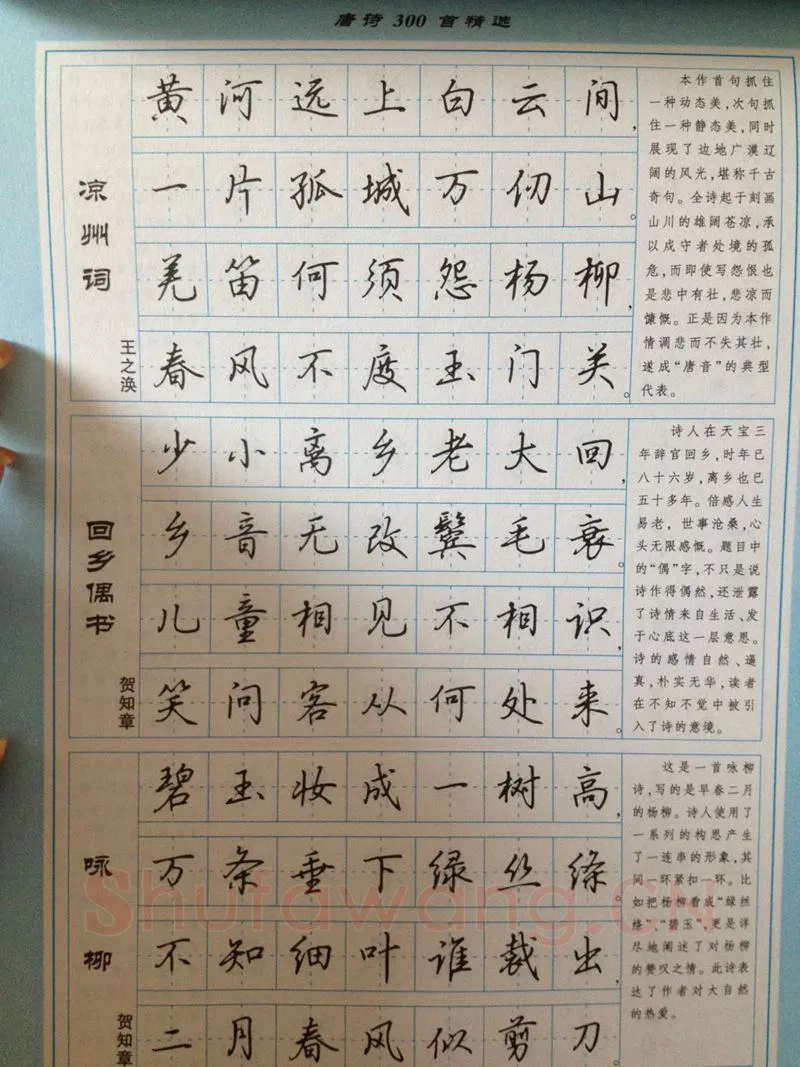 唐诗 300 首精选
凉州词
王之涣
黄河远上白云间,
一片孤城万仞山。
羌笛何须怨杨柳,
春风不度玉门关。
本作首句抓住
一种动态美,次句抓
住一种静态美,同时
展现了边地广漠辽
阔的风光,堪称千古
奇句。全诗起于刻画
山川的雄阔苍凉,承
以戍守者处境的孤
危,而即使写怨恨也
是悲中有壮,悲凉而
慷慨。正是因为本作
情调悲而不失其壮,
遂成“唐音”的典型
代表。
回乡偶书
贺知章
少小离乡老大回,
乡音无改鬓毛衰。
儿童相见不相识,
笑问客从何处来。
诗人在天宝三
年辞官回乡,时年已
八十六岁,离乡也已
五十多年。倍感人生
易老, 世事沧桑,心
头无限感慨。题目中
的“偶”字,不只是说
诗作得偶然,还泄露
了诗情来自生活、发
于心底这一层意思。
诗的感情自然、逼
真,朴实无华,读者
在不知不觉中被引
入了诗的意境。
咏柳
贺知章
碧玉妆成一树高,
万条垂下绿丝绦。
不知细叶谁裁出,
二月春风似剪刀。
这是一首咏柳
诗,写的是早春二月
的杨柳。诗人使用了
一系列的构思产生
了一连串的形象,其
间一环紧扣一环。比
如把杨柳看成“绿丝
绦”“碧玉”,更是详
尽地阐述了对杨柳
的赞叹之情。此诗表
达了作者对大自然
的热爱。
Shufawang.CN